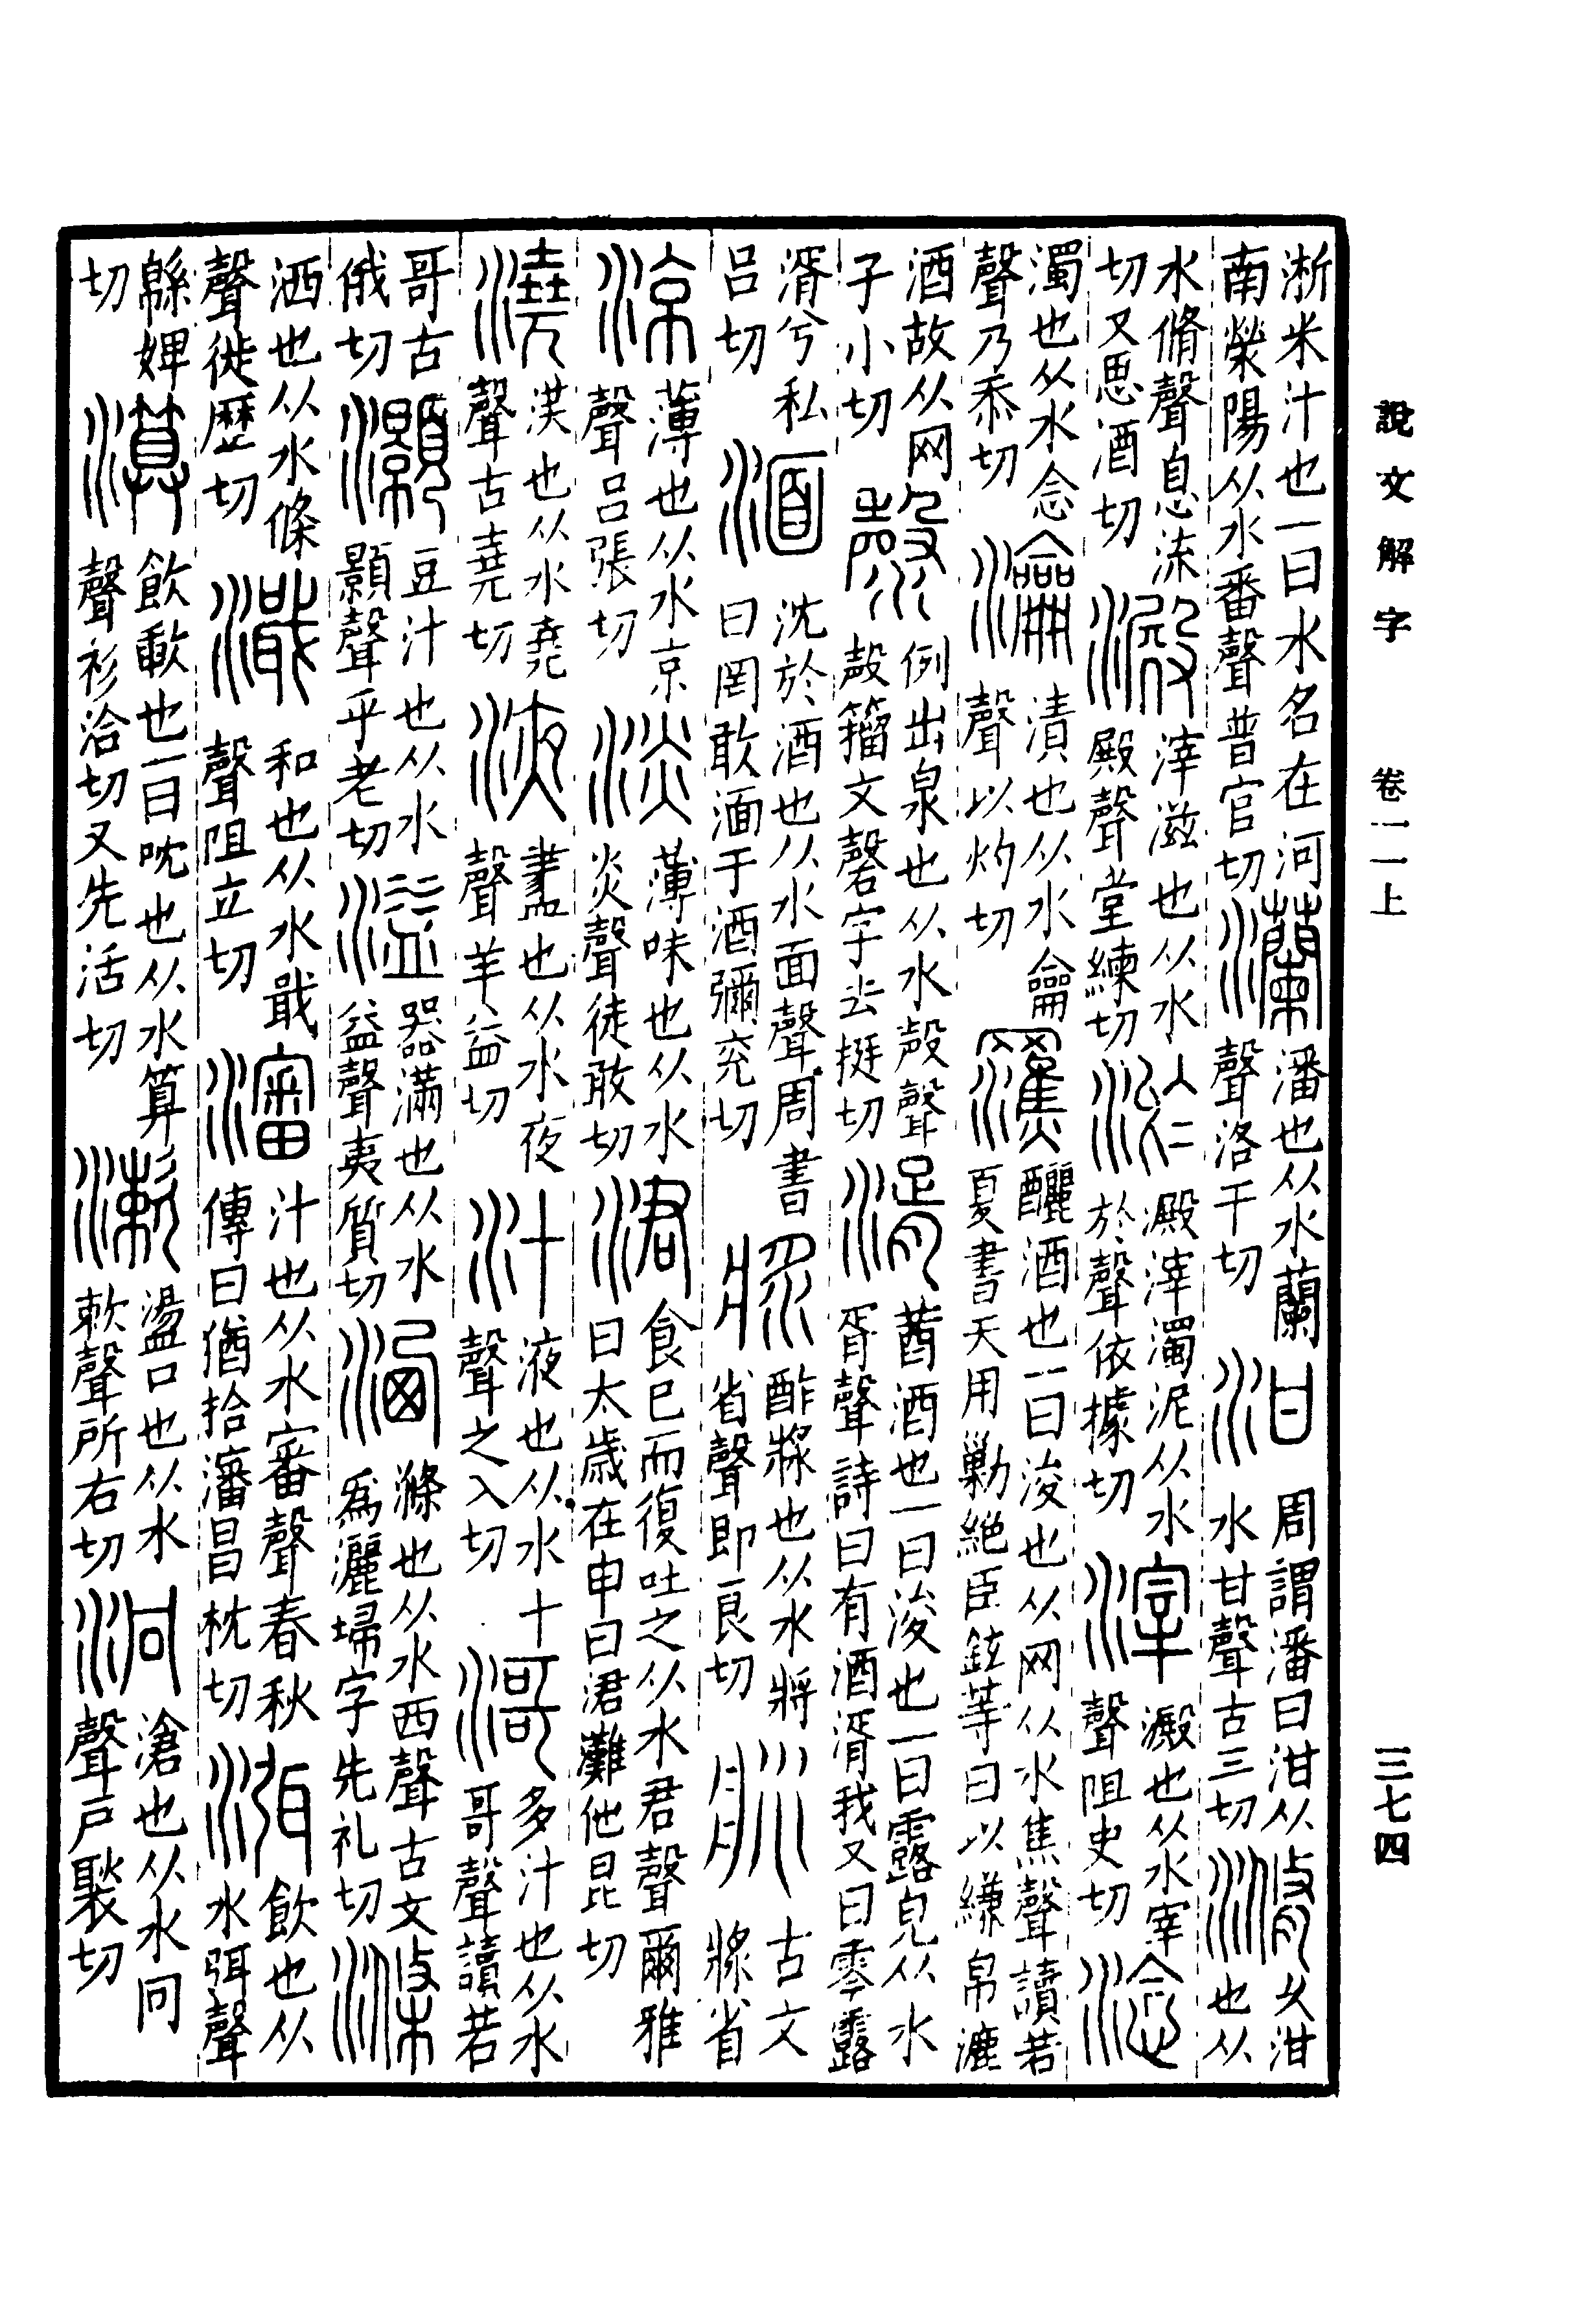 說文解字 卷一一上 三七四
淅米汁也一曰水名在河南滎陽从水番聲普官切灡潘也从水蘭聲洛干切泔周謂潘曰泔从水甘聲古三切滫久泔也从
水脩聲息流切又思酒切澱滓滋也从水殿聲堂練切淤澱滓濁泥从水於聲依據切滓澱也从水宰聲阻史切淰
濁也从水念聲乃忝切瀹漬也从水龠聲以灼切𤅮釃酒也一曰浚也从网从水焦聲讀若夏書天用勦絕臣鉉等曰以縑帛漉
酒故从网子小切漀側出泉也从水殸聲殸籀文磬字去挺切湑莤酒也一曰浚也一曰露皃从水胥聲詩曰有酒湑我又曰零露
湑兮私呂切湎沈於酒也从水面聲周書曰罔敢湎于酒彌兖切㯡酢㯡也从水將省聲即良切古文㯡省
涼薄也从水京聲呂張切淡薄味也从水炎聲徒敢切涒食已而復吐之从水君聲爾雅曰太歲在申曰涒灘他昆切
澆㳸也从水堯聲古堯切液𧗁也从水夜聲羊益切汁液也从水十聲之入切滒多汁也从水哥聲讀若
哥古俄切灝豆汁也从水顥聲乎老切溢器滿也从水益聲夷質切洒滌也从水西聲古文爲灑埽字先礼切滌
洒也从水條聲徒歷切濈和也从水戢聲阻立切瀋汁也从水審聲春秋傳曰猶拾瀋昌枕切渳飲也从水弭聲
緜婢切𣿞飲歃也一曰吮也从水算聲衫洽切又先活切漱盪口也从水欶聲所右切泂滄也从水冋聲戶褧切